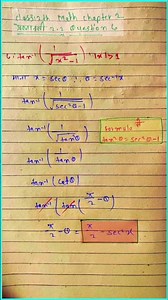 class 12th Math chapter 2
Exercise 2.2 Question 6
6. tan⁻¹ (1/√(x²-1)), |x| > 1
x = secθ ∴ θ = sec⁻¹x
tan⁻¹ (1/√(sec²θ-1))
tan⁻¹ (1/√(tan²θ))
formula
tan²θ = sec²θ-1
tan⁻¹ (1/tanθ)
tan⁻¹ (cotθ)
tan⁻¹ (tan (π/2 - θ))
π/2 - θ = π/2 - sec⁻¹x